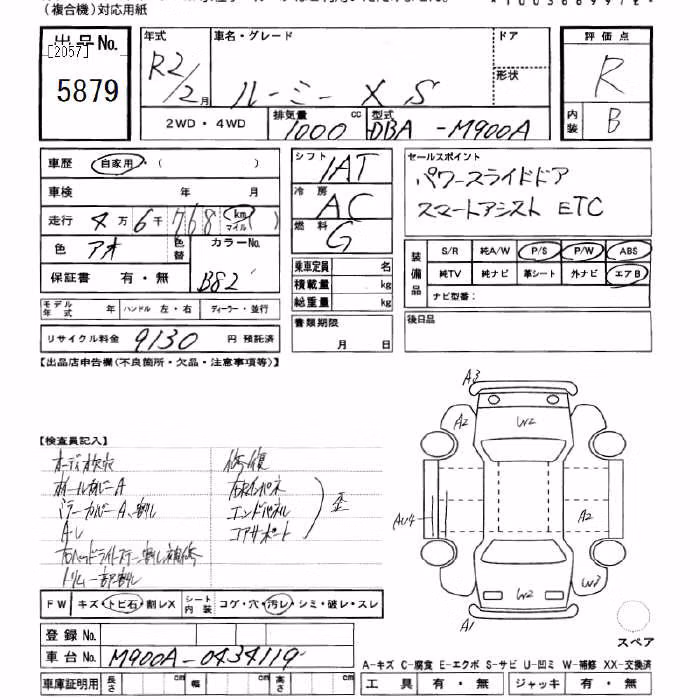 (複合機)対応用紙
出品No.
[2057]
5879
年式
R2/2月
車名・グレード
ルーミー X S
ドア
形状
評価点
R
内装 B
2WD・4WD
排気量 1000 cc
型式 DBA-M900A
車歴 自家用・( )
車検 年 月
走行 4万6千768 km マイル( )
色 アオ 色替
カラーNo. B82
保証書 有・無
シフト IAT
冷房 AC
燃料 G
乗車定員 名
積載量 kg
総重量 kg
セールスポイント
パワースライドドア
スマートアシスト ETC
装備品
S/R 純A/W P/S P/W ABS
純TV 純ナビ 革シート 外ナビ エアB
ナビ型番:
モデル年式 年 ハンドル 左・右 ディーラー・並行
リサイクル料金 9130 円 預託済
書類期限
月 日
後日品
【出品店申告欄(不良箇所・欠品・注意事項等)】
【検査員記入】
オーディオ欠
ホイールカバーA
ミラーカバーA、割れ
修復
右Rインパネ
エンドパネル
コアサポート
歪
A3
A2
W2
AU4
A2
W2
W3
A1
スペア
FW キズ・トビ石・割レX
シート内装 コゲ・穴・汚レ・シミ・破レ・スレ
登録No.
車台No. M900A-0434119
A-キズ C-腐食 E-エクボ S-サビ U-凹ミ W-補修 XX-交換済
車庫証明用 長さ cm 幅 cm 高さ cm
工具 有・無 ジャッキ 有・無